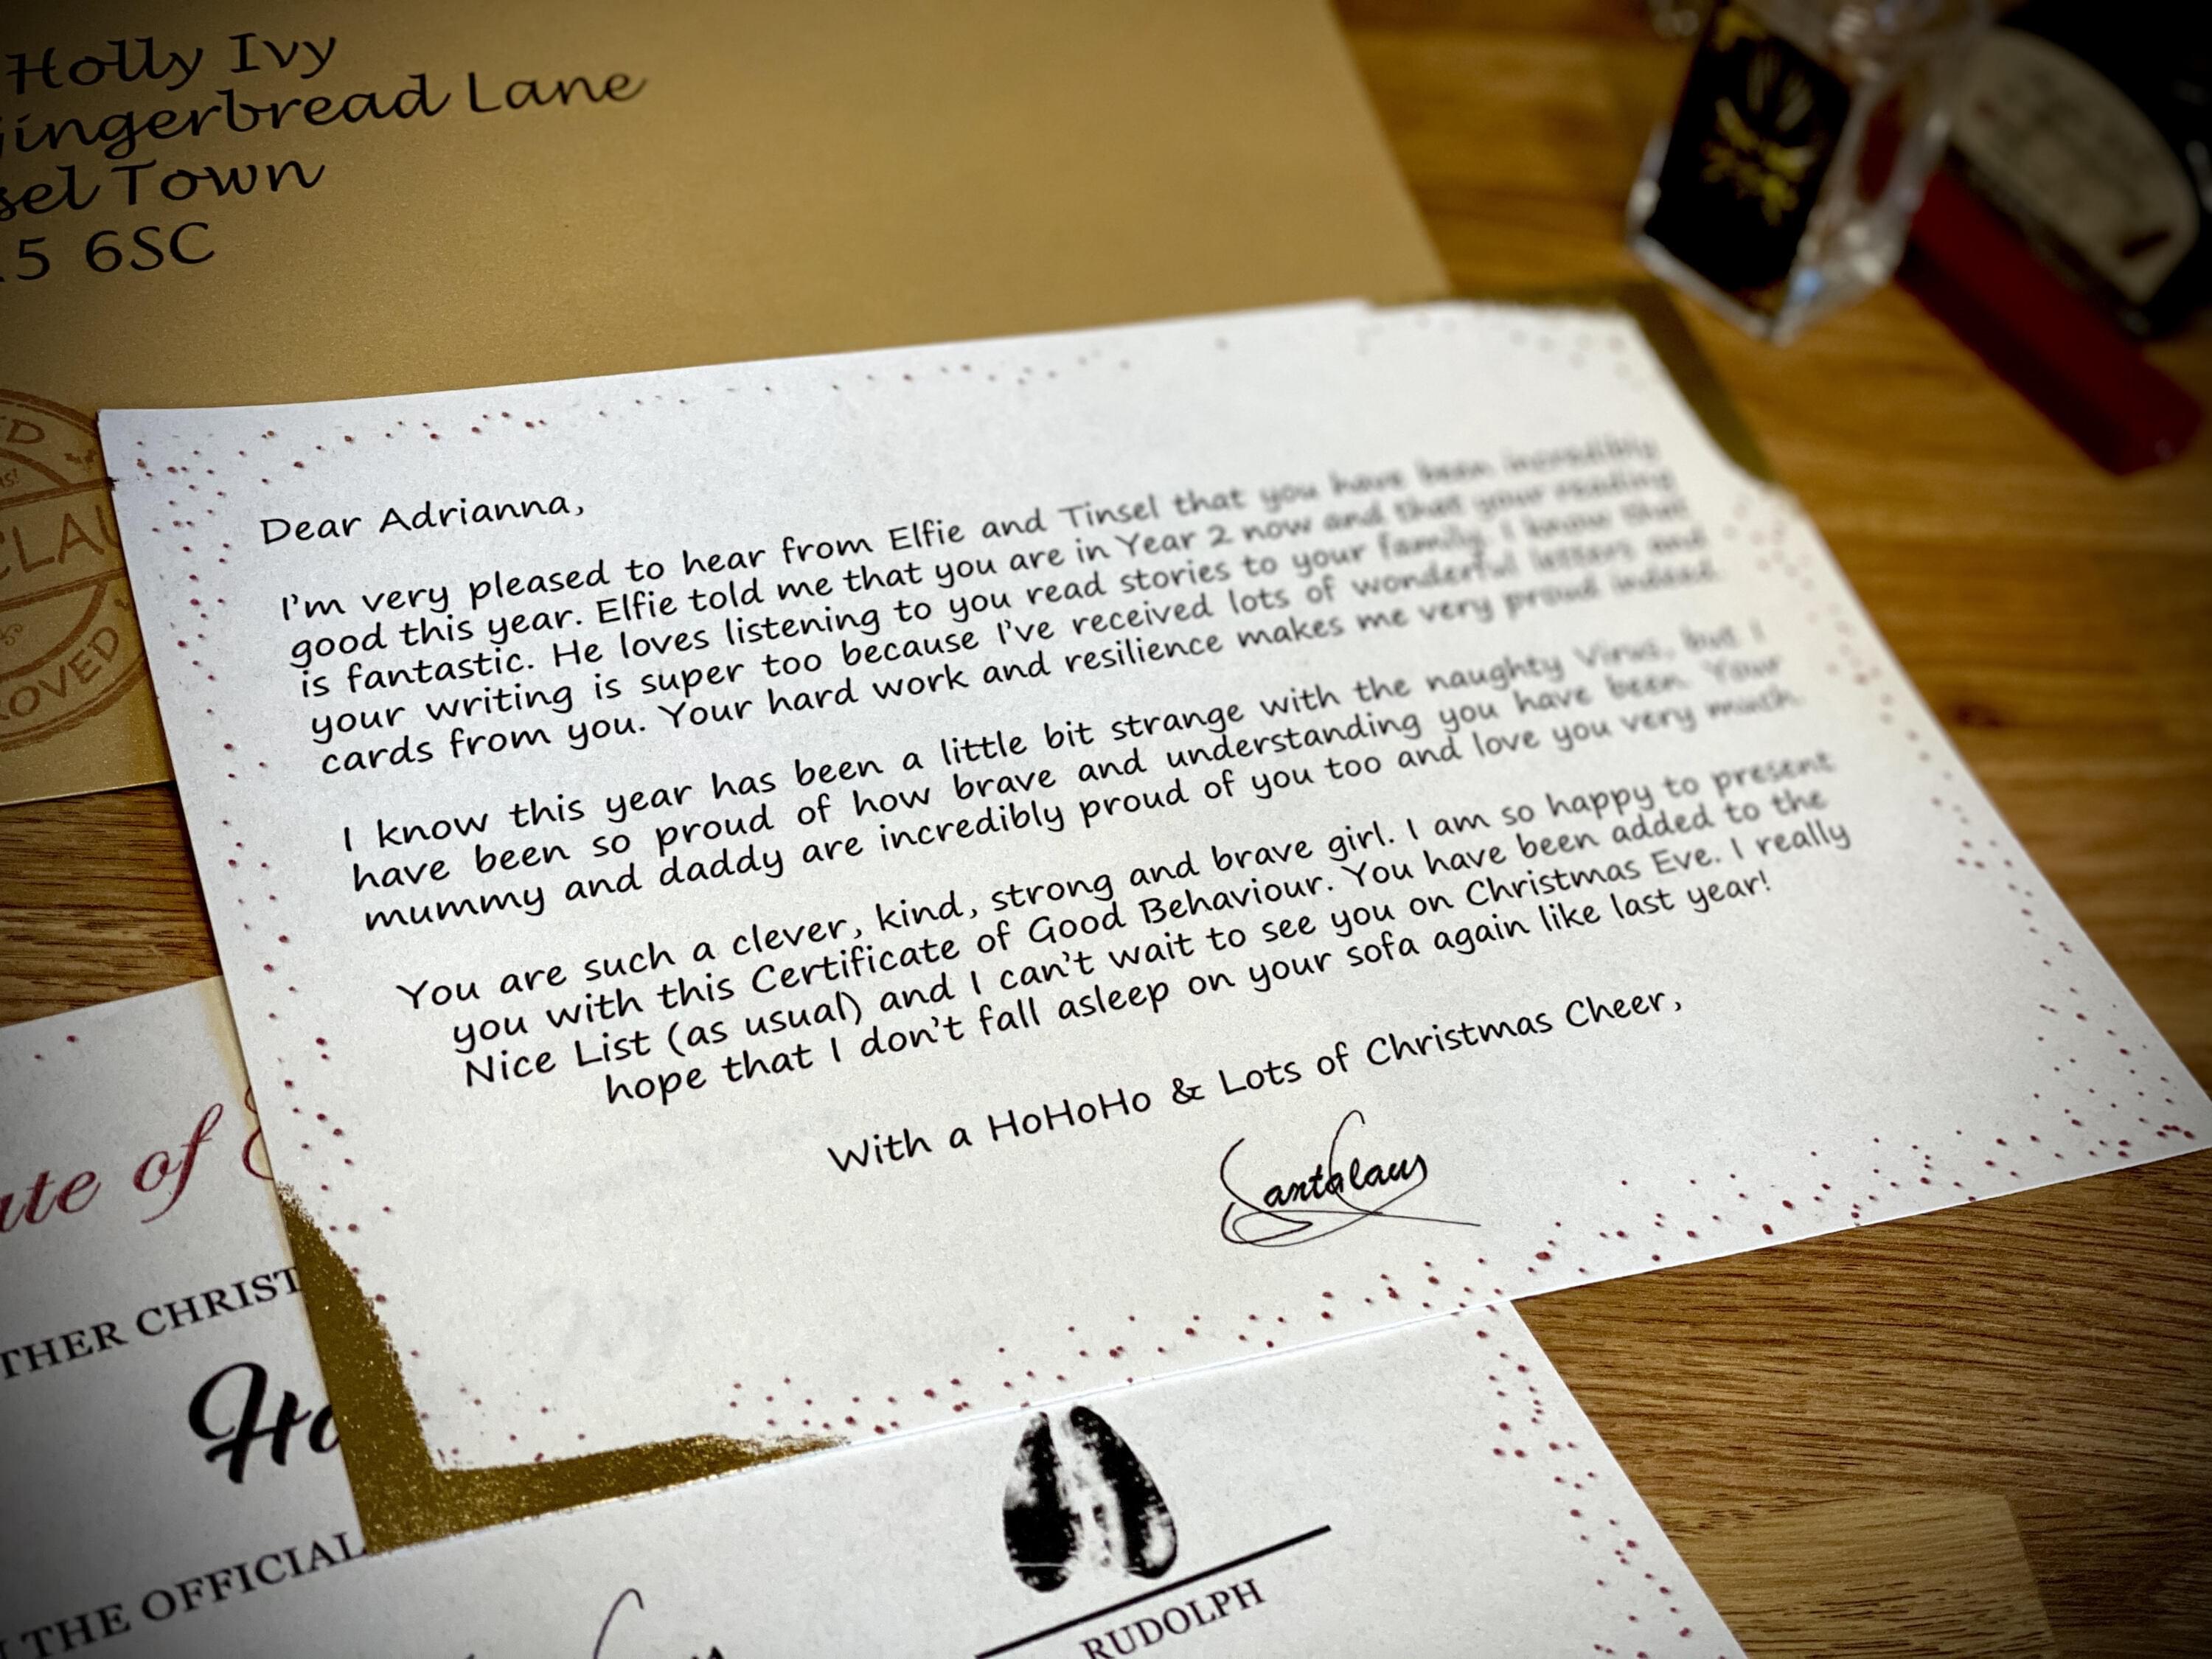 Holly Ivy
Gingerbread Lane
sel Town
15 6SC
ED
CLAU
ROVED
Dear Adrianna,
I'm very pleased to hear from Elfie and Tinsel that you have been incredibly
good this year. Elfie told me that you are in Year 2 now and that your reading
is fantastic. He loves listening to you read stories to your family. I know that
your writing is super too because I've received lots of wonderful letters and
cards from you. Your hard work and resilience makes me very proud indeed.
I know this year has been a little bit strange with the naughty Virus, but I
have been so proud of how brave and understanding you have been. Your
mummy and daddy are incredibly proud of you too and love you very much.
You are such a clever, kind, strong and brave girl. I am so happy to present
you with this Certificate of Good Behaviour. You have been added to the
Nice List (as usual) and I can't wait to see you on Christmas Eve. I really
hope that I don't fall asleep on your sofa again like last year!
With a HoHoHo & Lots of Christmas Cheer,
Santa Claus
ate of
THER CHRIST
Ho
THE OFFICIAL
RUDOLPH